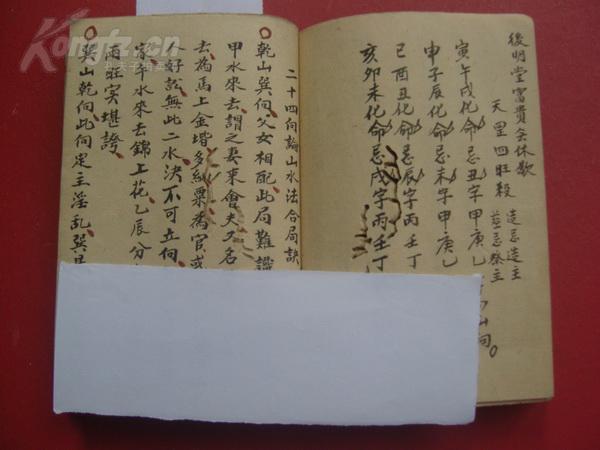 後明堂富貴矣休歇
天星四旺殺 造忌造主
葬忌祭主
寅午戌化命忌丑字甲庚乙
申子辰化命忌未字甲庚乙
巳酉丑化命忌辰字丙壬丁
亥卯未化命忌戌字丙壬丁
山向。
二十四向論山水法合局訣
乾山巽向父女相配此局難識
甲水來去謂之妻來會夫又名
去為馬上金堦多納粟為官或
个好訟無此二水決不可立向
家午水來去錦上花乙辰分
兩旺实堪誇
巽山乾向此向定主淫乱巽